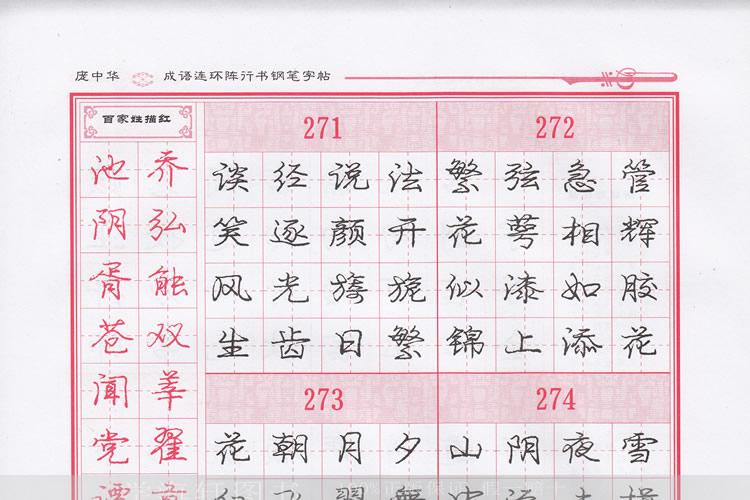 庞中华 成语连环阵行书钢笔字帖
百家姓描红
池乔
阴弘
胥能
苍双
闻莘
党翟
271
谈经说法
笑逐颜开
风光旖旎
生齿日繁
272
繁弦急管
花萼相辉
似漆如胶
锦上添花
273
花朝月夕
274
山阴夜雪